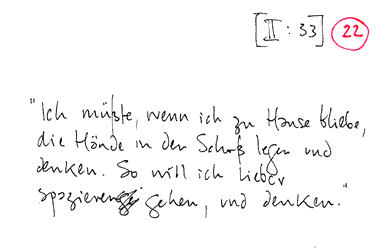 [II : 33] 22
"Ich müßte, wenn ich zu Hause bliebe,
die Hände in den Schoß legen und
denken. So will ich lieber
spazieren gehen, und denken."